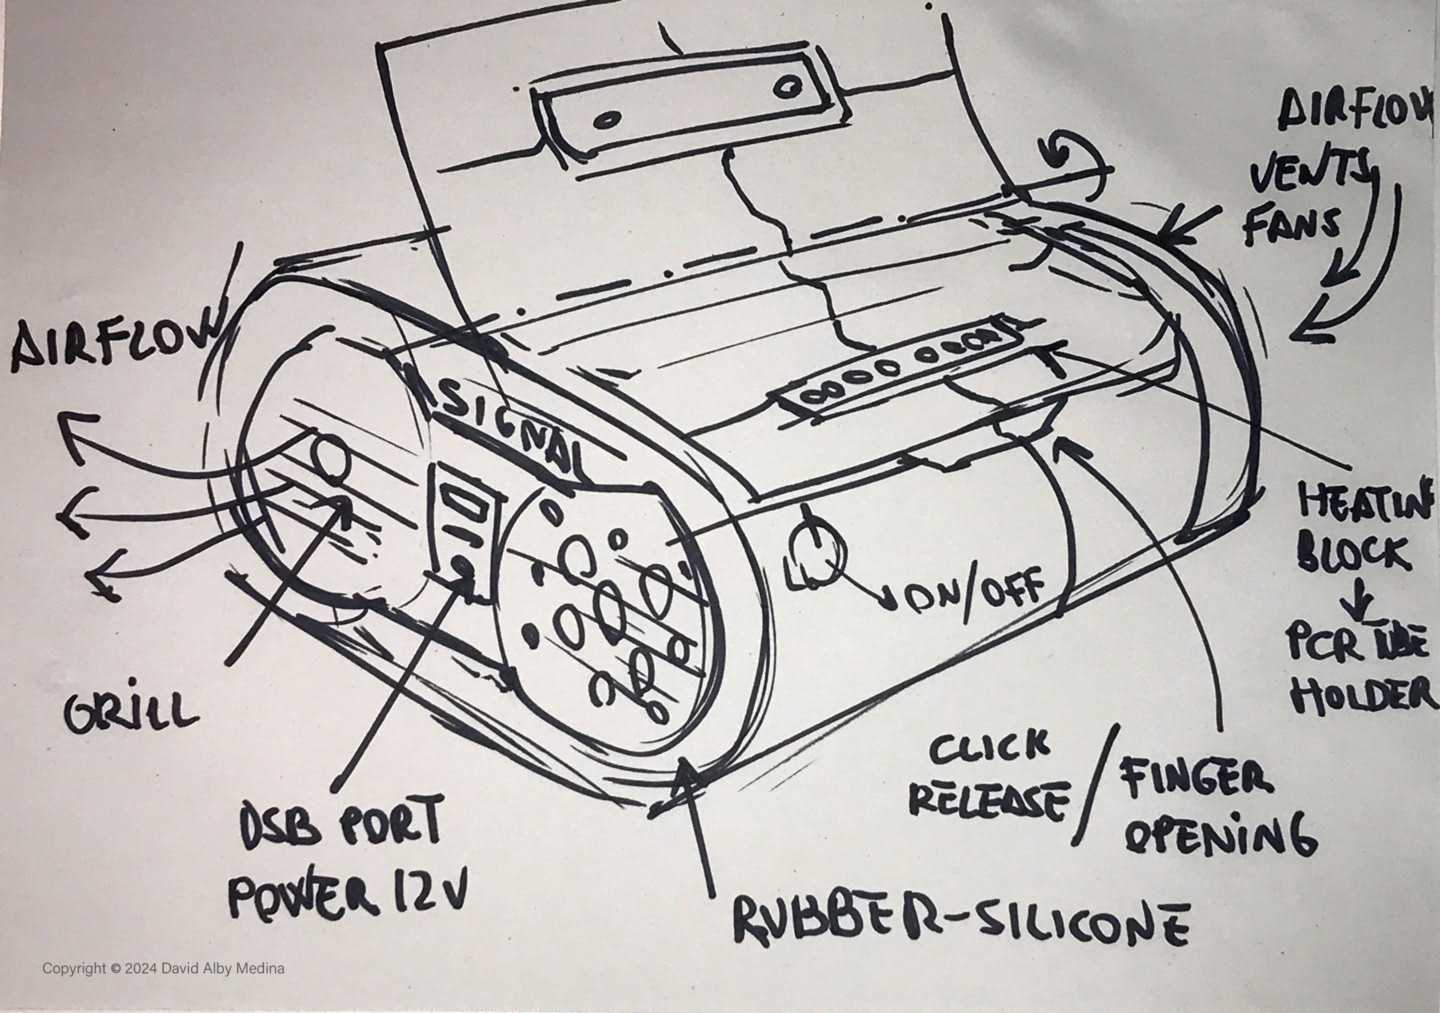 AIRFLOW
VENTS
FANS
AIRFLOW
SIGNAL
HEATIN
BLOCK
PCR TUBE
HOLDER
ON/OFF
GRILL
CLICK
RELEASE
/
FINGER
OPENING
USB PORT
POWER 12V
RUBBER-SILICONE
Copyright © 2024 David Alby Medina